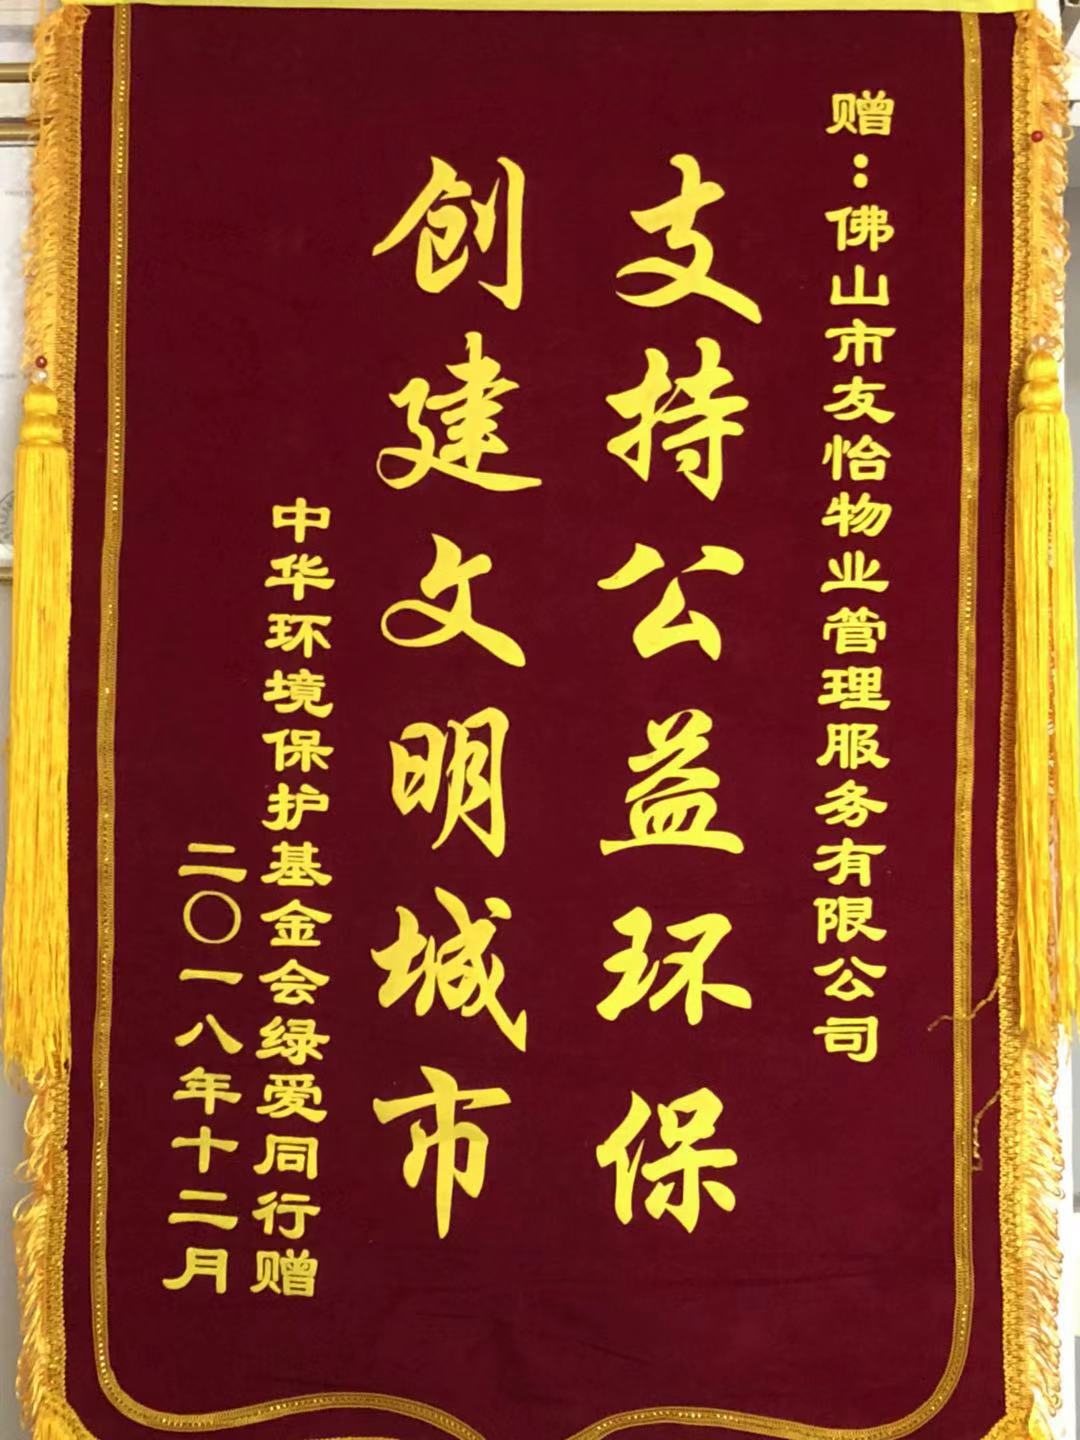 赠：佛山市友怡物业管理服务有限公司
支持公益环保
创建文明城市
中华环境保护基金会绿爱同行赠
二〇一八年十二月